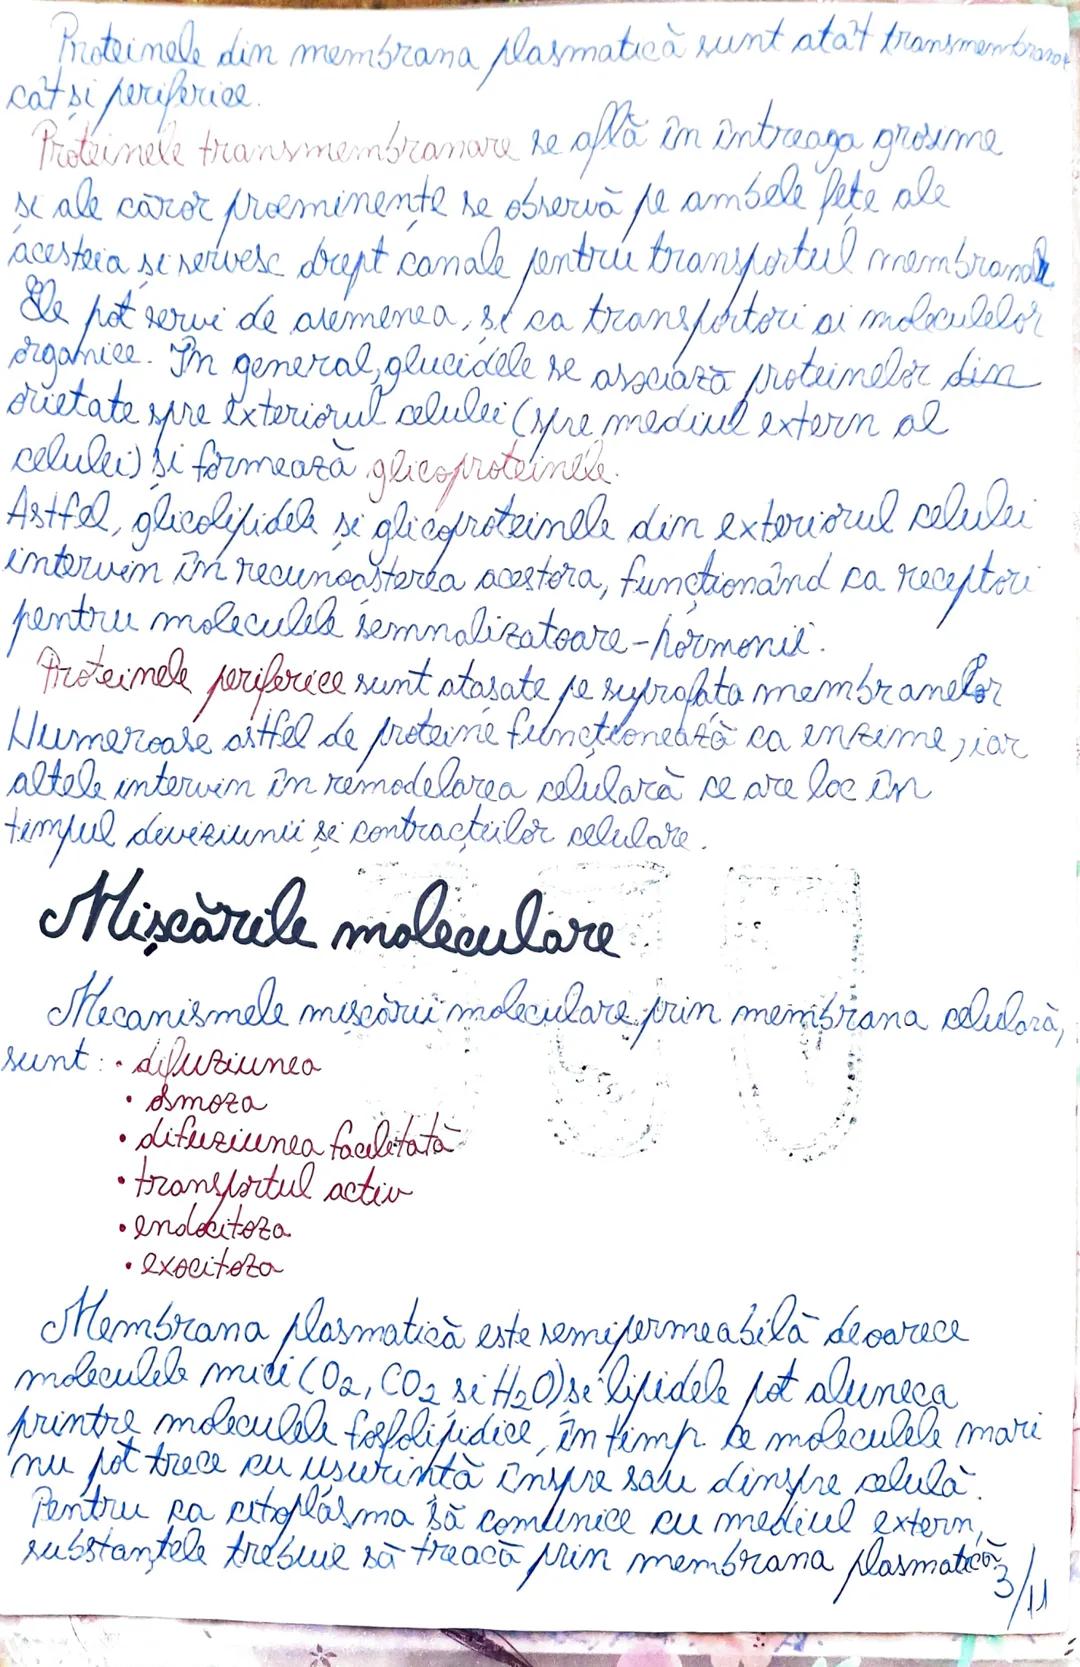 Proteinele din membrana plasmatică sunt atât transmembranare
cât și periferice.
Proteinele transmembranare se află în întreaga grosime
și ale căror proeminențe se observă pe ambele fețe ale
acesteia și servesc drept canale pentru transportul membranar
Ele pot servi de asemenea, și ca transportori ai moleculelor
organice. În general, glucidele se asociază proteinelor din
orietate spre exteriorul celulei (spre mediul extern al
celulei) și formează glicoproteinele.
Astfel, glicolipidele și glicoproteinele din exteriorul celulei
intervin în recunoașterea acestora, funcționând ca receptori
pentru moleculele semnalizatoare-hormonii.
Proteinele periferice sunt atașate pe suprafața membranelor
Numeroase astfel de proteine funcționează ca enzime, iar
altele intervin în remodelarea celulară ce are loc în
timpul diviziunii și contracțiilor celulare.
Mișcările moleculare
Mecanismele mișcării moleculare prin membrana celulară,
sunt: • difuziunea
• osmoza
• difuziunea facilitată
• transportul activ
• endocitoza
• exocitoza
Membrana plasmatică este semipermeabilă deoarece
moleculele mici (O2, CO2 și H2O) și lipidele pot aluneca
printre moleculele fosfolipidice, în timp ce moleculele mari
nu pot trece cu ușurință înspre sau dinspre celulă.
Pentru ca citoplasma să comunice cu mediul extern,
substanțele trebuie să treacă prin membrana plasmatică.
3/11